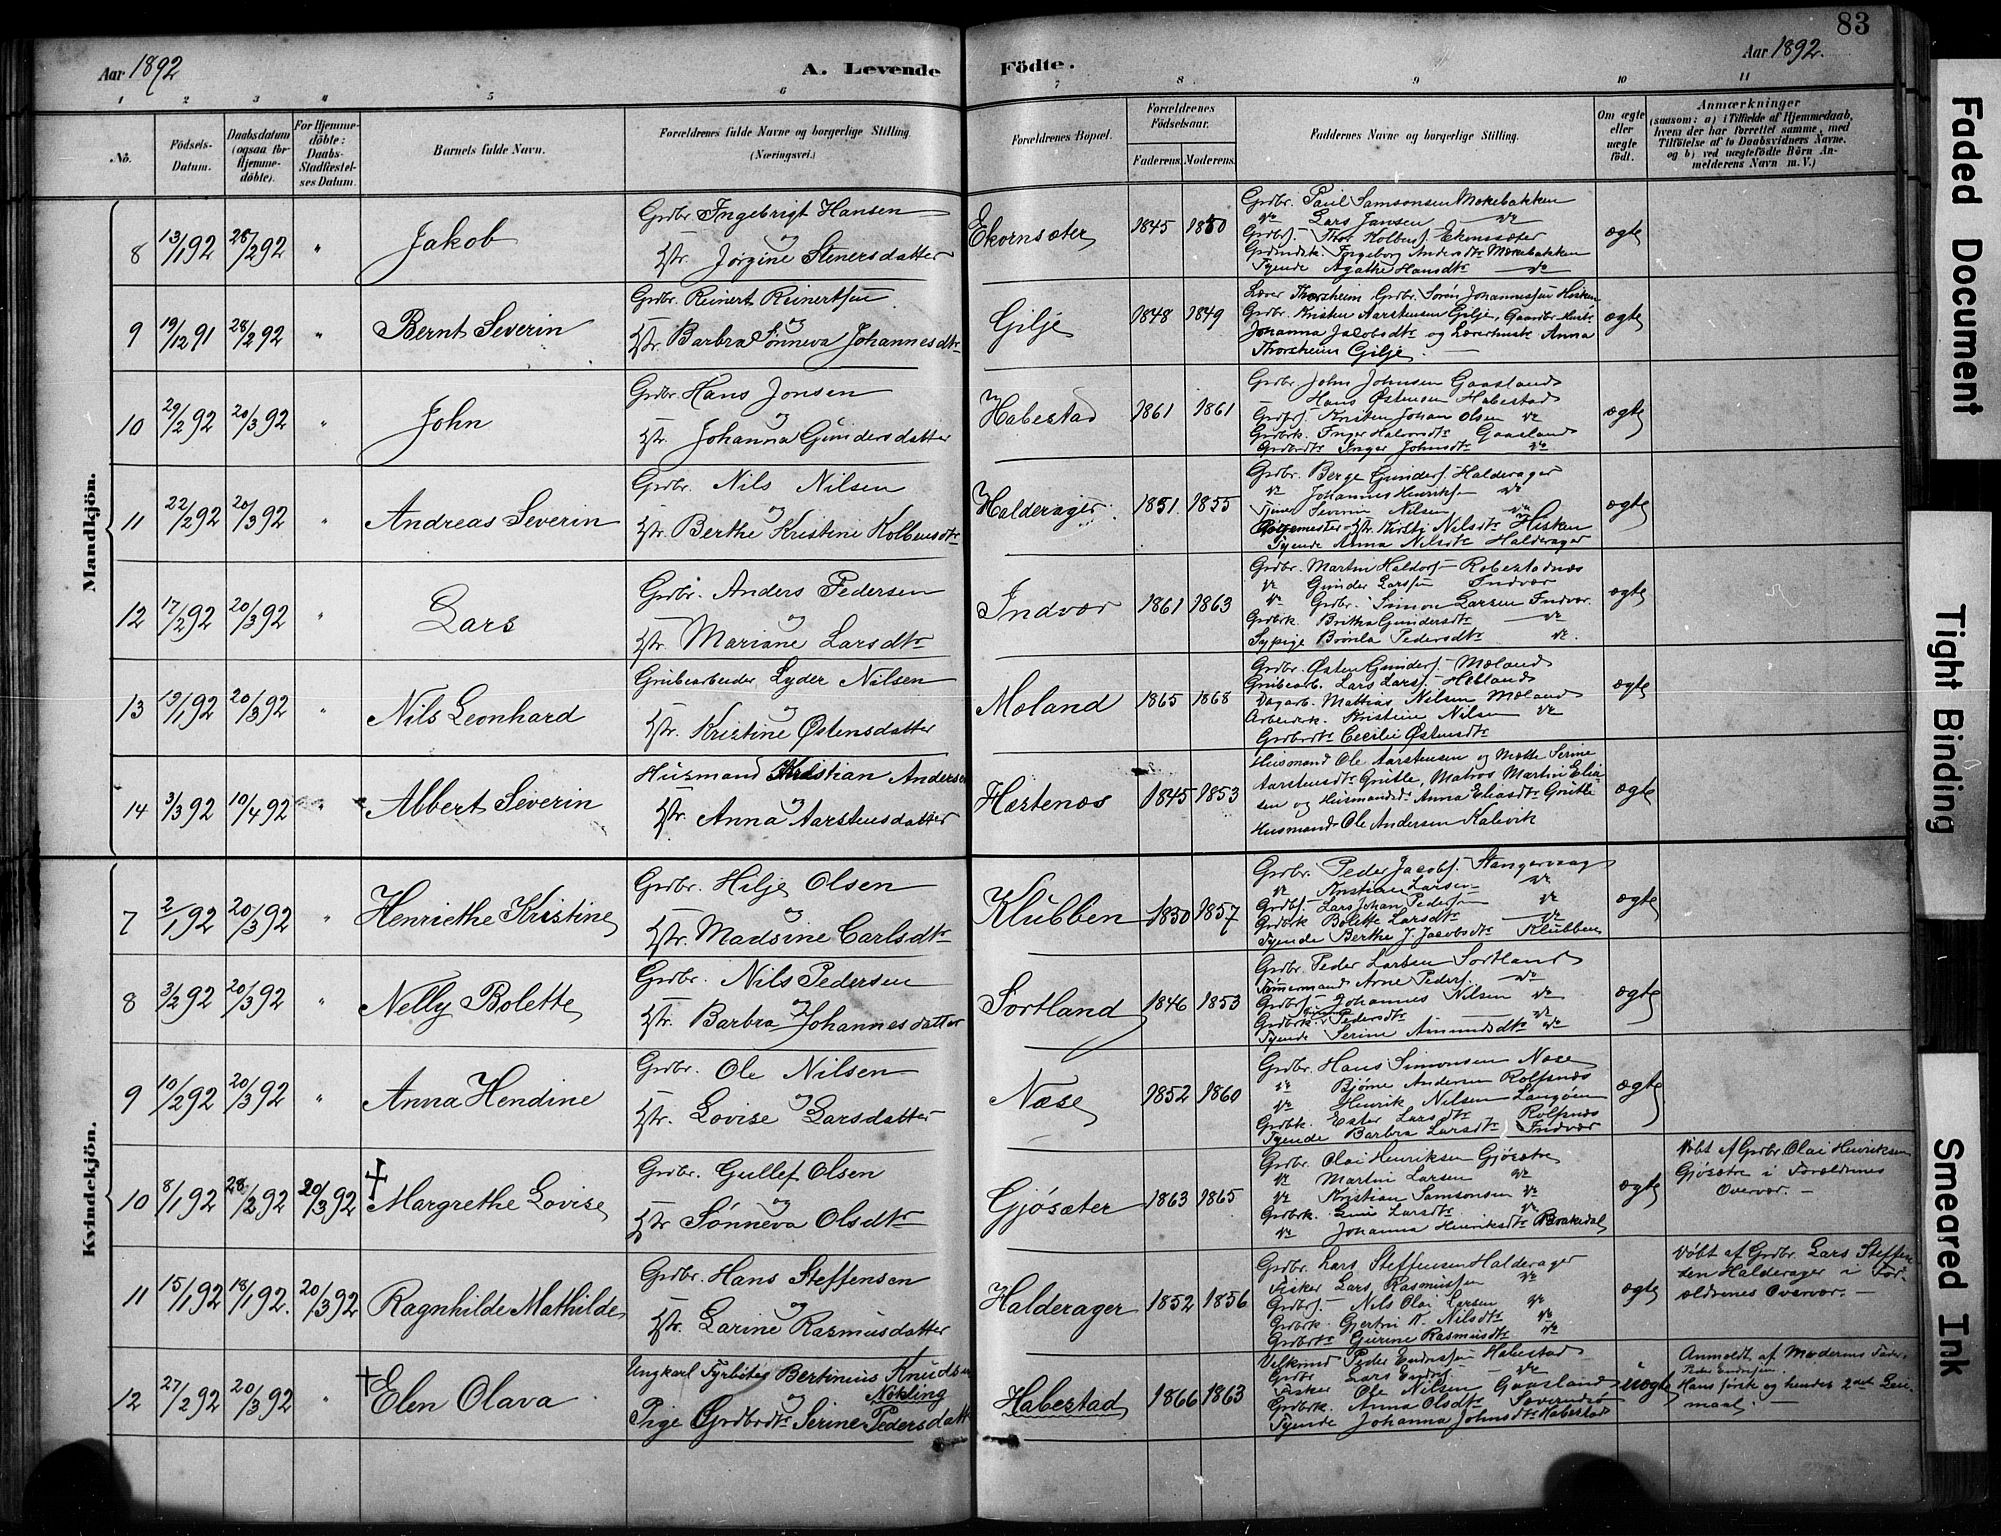 83
Aar 1892
A. Levende
Födte.
Aar 1892.
1 2 3 4 5 6 7 8 9 10 11
No.
Födsels-
Datum.
Daabsdatum
(ogsaa for
Hjemme-
döbte).
For Hjemme-
döbte:
Daabs-
Stadfæstel-
ses Datum.
Barnets fulde Navn.
Forældrenes fulde Navne og borgerlige Stilling
(Næringsvei.)
Forældrenes Bopæl.
Forældrenes
Födselsaar.
Faderens. Moderens.
Faddernes Navne og borgerlige Stilling.
Om ægte
eller
uægte
födt.
Anmærkninger
(saasom: a) i Tilfælde af Hjemmedaab,
hvem der har forrettet samme, med
Tilföielse af to Daabsvidners Navne,
og b) ved uægtefödte Börn An-
melderens Navn m. V.)
Mandkjön.
8 13/1 92 28/2 92 " Jakob
Grdbr. Ingebrigt Hansen
og
Hstr. Jørgine Stenersdatter
Ekornsæter 1845 1850
Grdbr. Paul Samsonsen Mokebakken
do Lars Jansen do
Grdbs. Thor Kolbens. Ekornsæter
Grdmdsk. Ingeborg Andersdtr Mokebakken
Tyende Agathe Hansdtr do
ægte
9 19/12 91 28/2 92 " Bernt Severin
Grdbr. Reinert Reinertsen
og
Hstr. Barbra Sønneva Johannesdtr
Gilje 1848 1849
Lærer Thorsheim Grdbr. Søren Johannessen Hisken
Grdbr. Kristen Aarstensen Gilje, Gaardbr. Hustr.
Johanna Jacobsdtr og Lærerhustr. Anna
Thorsheim Gilje.
ægte
10 29/2 92 20/3 92 " John
Grdbr. Hans Jonsen
og
Hstr. Johanna Gundersdatter
Habestad 1861 1861
Grdbr. John Johnsen Gaasland
Hans Østensen Habestad
Grdbs. Knut Johan Olsen do
Grdbrk. Inger Halvorsdtr Gaasland
Grdbrdtr Inger Johnsdtr do
ægte
11 22/2 92 20/3 92 " Andreas Severin
Grdbr. Nils Nilsen
og
Hstr. Berthe Kristine Kolbensdtr
Halderager 1851 1855
Grdbr. Berge Gunders. Halderager
do Johannes Henriks. do
Severin Nilsen do
Hstr. Kirsti Nilsdtr Hisken
Tyende Anna Nilsdtr Halderager
ægte
12 17/2 92 20/3 92 " Lars
Grdbr. Anders Pedersen
og
Hstr. Mariane Larsdtr
Indvær 1861 1863
Grdbr. Martin Haldors. Robestadnæs
do Gunder Larssen Indvær
do Grdbr. Simon Larsen Indvær.
Grdbrk. Britha Gundersdtr do
Sypige Brønla Pedersdtr do.
ægte
13 19/1 92 20/3 92 " Nils Leonhard
Grubearbeider Lyder Nilsen
og
Hstr. Kristine Østensdatter
Moland 1865 1868
Grdbr. Østen Gunders. Moland
Grubearb. Lars Lars. Hebland
Dagarb. Mathias Nilsen Moland
Arbeiderk. Kristine Nilsen do
Grdbrdtr Cecilie Østensdtr
ægte
14 3/3 92 10/4 92 Albert Severin
Husmand Kristian Andersen
og
Hstr. Anna Aarstensdatter
Hærtenæs 1845 1853
Husmand Ole Aarstensen og Mette Serine
Aarstensdtr Grutle, Matros Martin Elia-
sen og Husmandsdtr Anna Eliasdtr Grutle
Husmand Ole Andersen Kalevik
ægte
Kvindekjön.
7 2/1 92 20/3 92 " Henriethe Kristine
Grdbr. Hilje Olsen
og
Hstr. Madsine Carlsdtr
Klubben 1850 1857
Grdbr. Peder Jacobs. Stangervaag
do Kristian Larsen do
Grdbs. Lars Johan Pedersen do
Grdbrk Bolette Larsdtr do
Tyende Berthe J. Jacobsdtr Klubben
ægte
8 3/2 92 20/3 92 " Nelly Bolette
Grdbr. Nils Pedersen
og
Hstr. Barbra Johannesdatter
Sortland 1846 1853
Grdbr. Peder Larsen Sortland
Tømmermand Arne Peders. do
Grdbs. Johannes Nilsen do
Grdbrk. Pedersdtr do
Tyende Serine Amundsdtr do
ægte
9 10/2 92 20/3 92 " Anna Hendine
Grdbr. Ole Nilsen
og
Hstr. Lovise Larsdatter
Næse 1852 1860
Grdbr. Hans Simonsen Næse
do Bjørne Andersen Rolfsnæs
do Henrik Nilsen Langøen
Grdbrk. Ester Larsdtr Rolfsnæs
Tyende Barbra Larsdtr Indvær
ægte
10 8/1 92 28/2 92 20/3 92 ✝ Margrethe Lovise
Grdbr. Gullef Olsen
og
Hstr Sønneva Olsdtr
Gjøsæter 1863 1865
Grdbr. Olai Henriksen Gjøsætre
do Martin Larsen do
do Kristian Samsonsen do
Grdbrk. Larsdtr do
do Johanna Henriksdtr Brakedal
ægte
Døbt af Grdbr. Olai Henriksen
Gjøsætre i Forældrenes
Overvær. —
11 15/1 92 18/1 92. 20/3 92 Ragnhilde Mathilde
Grdbr. Hans Steffensen
og
Hstr. Larine Rasmusdatter
Halderager 1852 1856
Grdbr. Lars Steffensen Halderager
Fisker Lars Rasmussen do
Grdbrs. Nils Olai Larsen do
Grdbrk. Gjertrui K. Nilsdtr do
Grdbrdtr Gurine Rasmusdtr do
ægte
Døbt af Grdbr. Lars Steffen-
sen Halderager i For-
ældrenes Overvær. —
12 27/2 92 20/3 92 " ✝ Elen Olava
Ungkarl Fyrbøter Bertinius Knudsen
og Nökling
Pige Grdbrdtr Serine Pedersdatter
Habestad 1866 1863
Peder Endresen Habestad
Grdbr Lars Endres. do
Fisker Ole Nilsen Gaasland
Grdbrk. Anna Olsdtr
Tyende Johanna Johnsdtr Habestad
uægte
Anmeldt af Moderens Fader
Peder Endresen
Hans første og hendes 2det Lei-
maal. —
Faded Document
Tight Binding
Smeared Ink